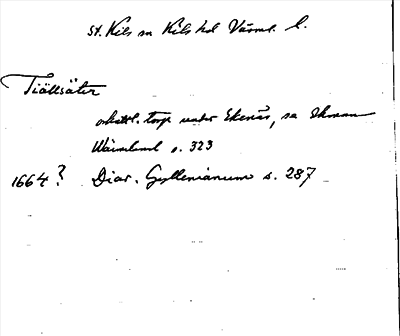 St. Kils sn Kils hd Värml. l.
Tiällsäter
oskattl. torp under Ekenäs, sa Ekman
Wärmland s. 323
1664? Diar. Gyllenianum s. 287